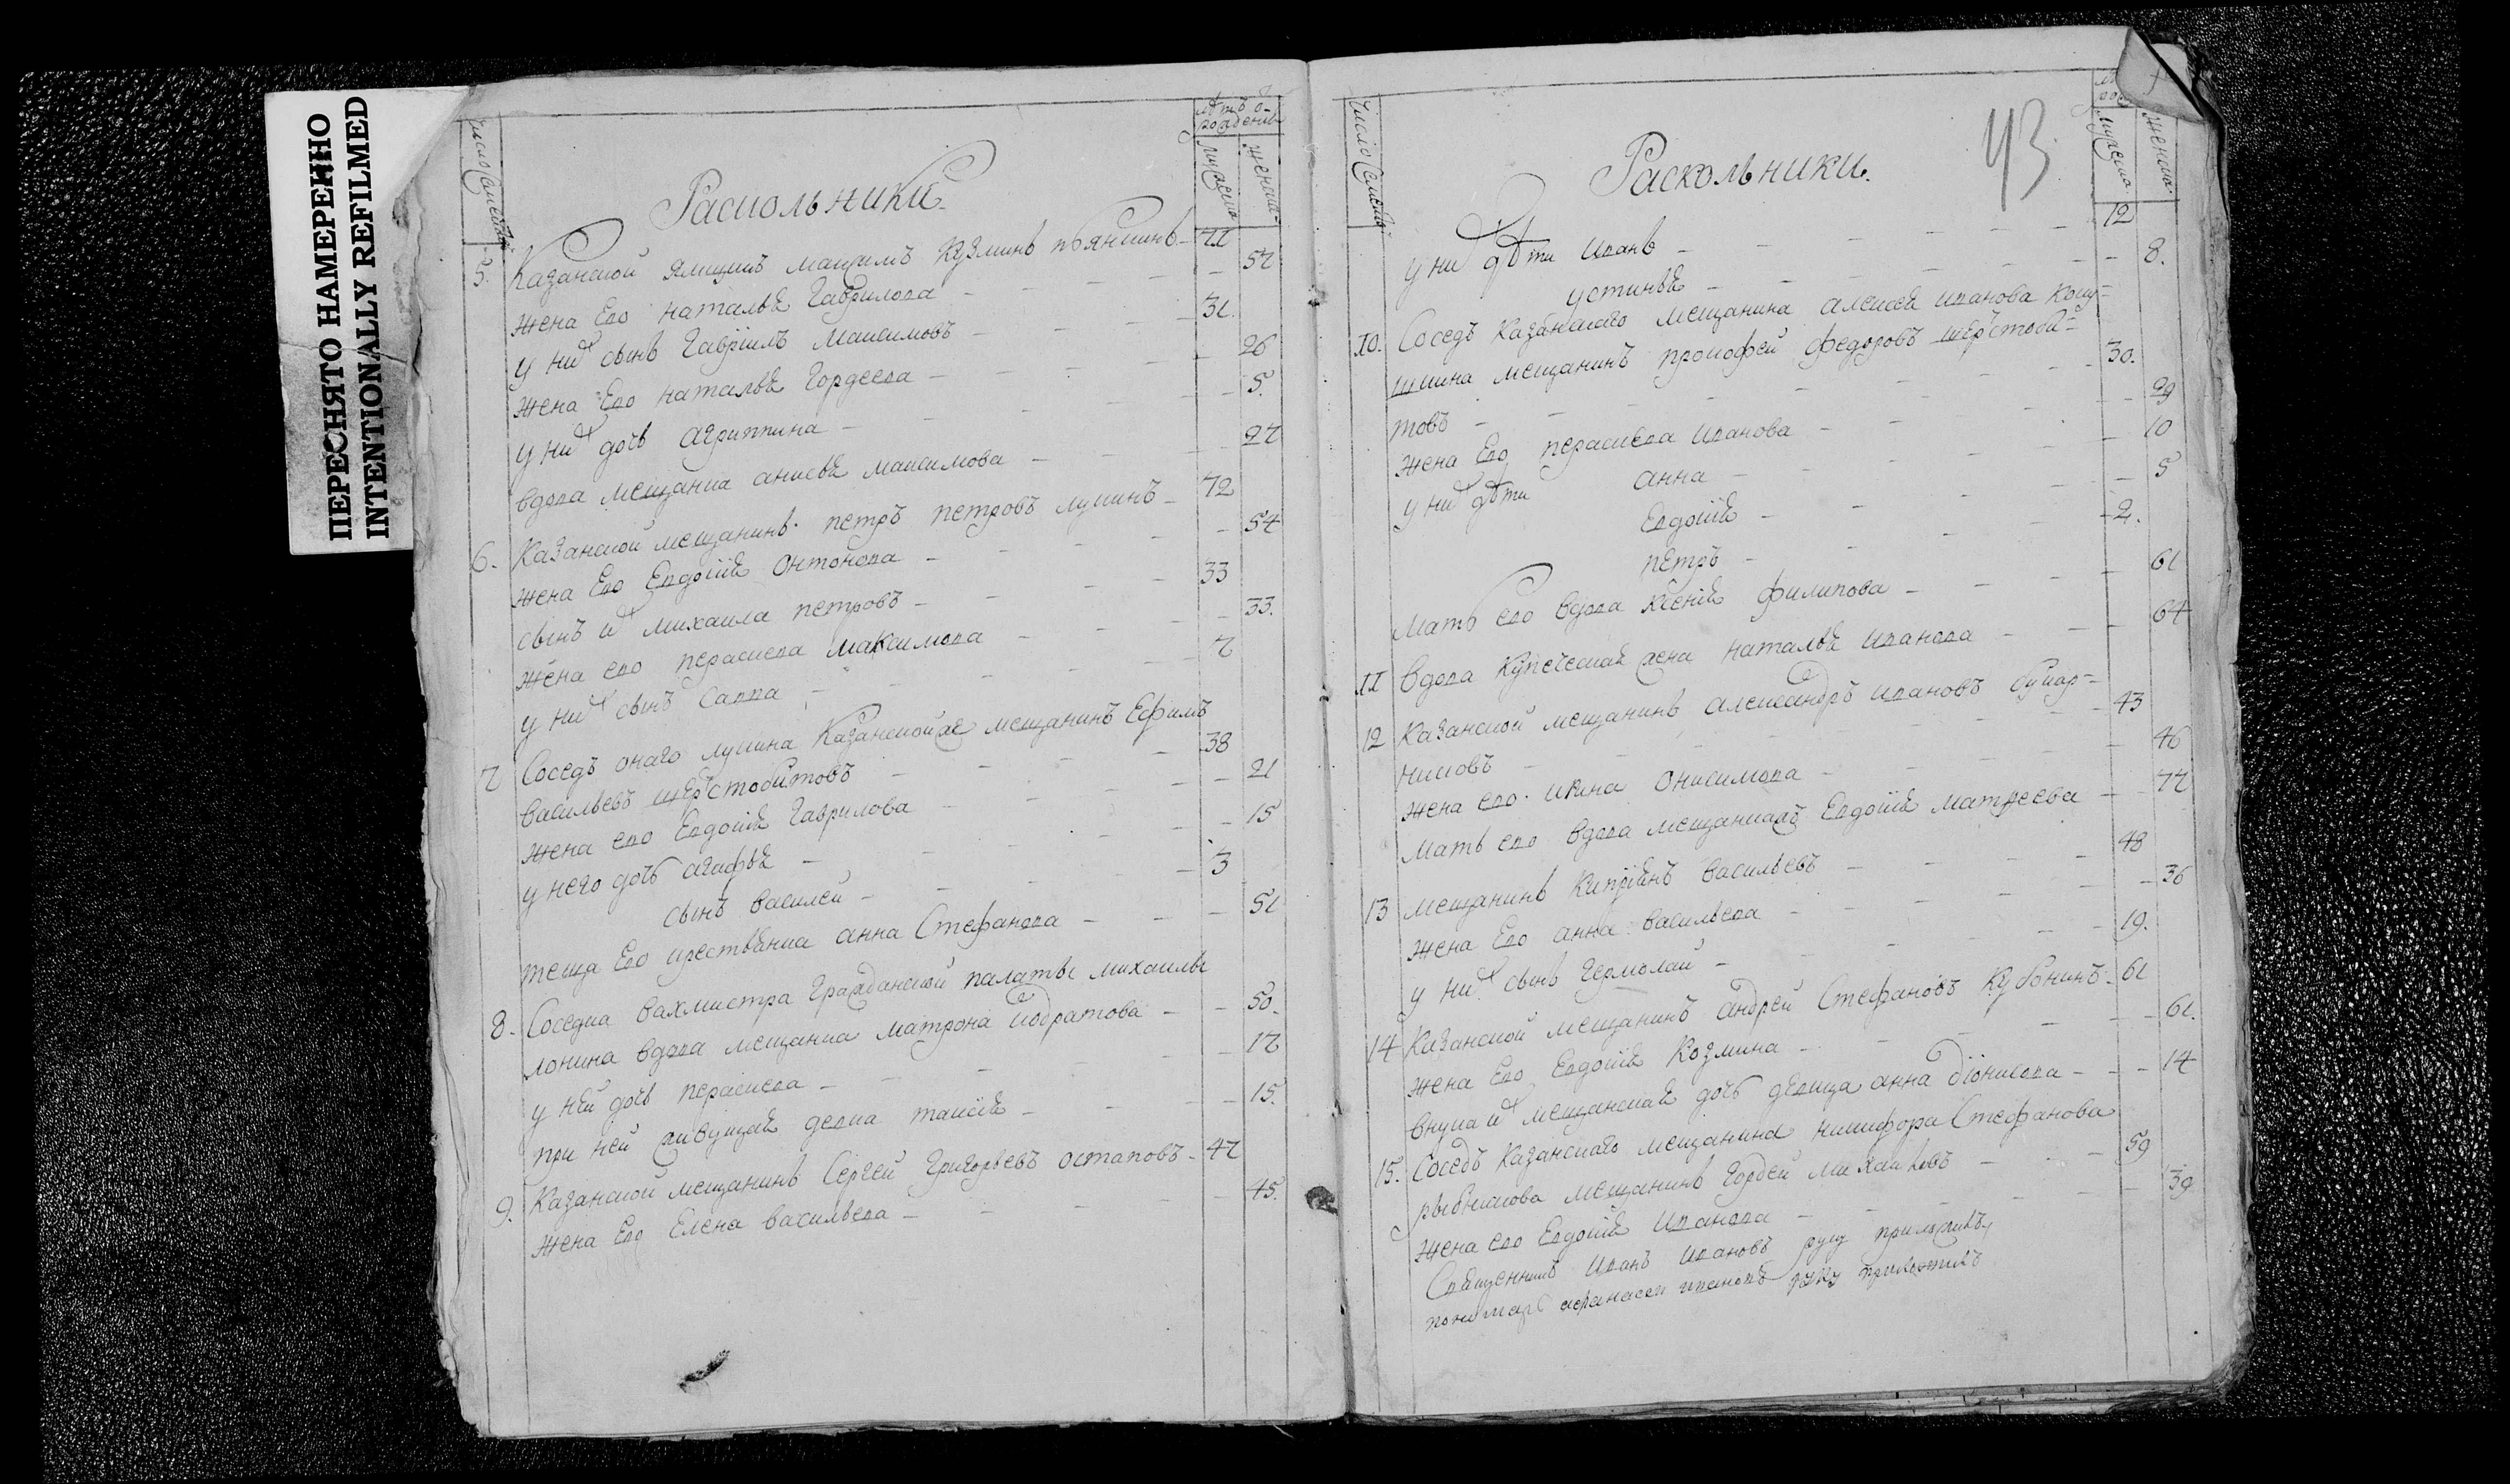 ПЕРЕСНЯТО НАМЕРЕННО
INTENTIONALLY REFILMED
число семействъ
лѣтъ о-
рождени
мужеска
женска
Раскольники
5. Казанской ямщикъ Максимъ Кузминъ пьянкинъ - 71
жена Его наталья Гаврилова - 57
у них сынъ Гаврiилъ Максимовъ - 31.
жена Его наталья Гордеева - 26
у них дочь агриппина - 5.
вдова мещанка максимова - 27
6. Казанской мещанинъ петръ петровъ лукинъ - 72
жена Его Евдокiя Онтонова - 54
сынъ их михаила петровъ - 33
жена ево парасковья максимова - 33.
у них сынъ Савва - 7
7 Соседъ онаго лукина Казанской же мещанинъ Ефимъ
васильевъ шерстобитовъ - 38
жена ево Евдокiя Гаврилова - 21
у него дочь агафья - 15
сынъ василей - 3
теща Ево крестьянка анна Стефанова - 51
8. Соседка вахмистра Гражданской палаты михаилы
лонина вдова мещанка матрона кодратова - 50.
у ней дочь - 17
при ней живущая девка таисiя - 15.
9. Казанской мещанинъ Сергей Григорьевъ остаповъ - 47
жена Ево Елена васильева - 45.
число семействъ
мужеска
женска
43
Раскольники.
у них дѣти Иванъ - 12
устинья - 8.
10. Соседъ Казанскаго мещанина алексея иванова
мещанинъ прокофей федоровъ шерстоби=
товъ - 30.
жена Ево Иванова - 29
у них дѣти анна - 10
Евдокiя - 5
петръ - 2.
мать ево вдова ксенiя филипова - 61
11 вдова купеческая жена наталья иванова - 64
12 Казанской мещанинъ александръ ивановъ
- 43
жена ево ирина Онисимова - 46
мать ево вдова мещанская Евдокiя матвеева - 77
13 мещанинъ Кипрiянъ васильевъ - 48
жена Ево анна васильева - 36
у них сынъ Гермолай - 19.
14 Казанской мещанинъ андрей Стефановъ Кубонинъ - 61
жена Ево Евдокiя Козмина - 61.
внука их мещанская дочь девица анна дiонисова - 14
15. Соседъ Казанскаго мещанина никифора Стефанова
рыбникова мещанинъ Гордей михаиловъ - 59
жена ево Евдокiя Иванова - 39
Священникъ Иванъ Ивановъ руку приложилъ,
пономарь афанасей ивановъ руку приложилъ